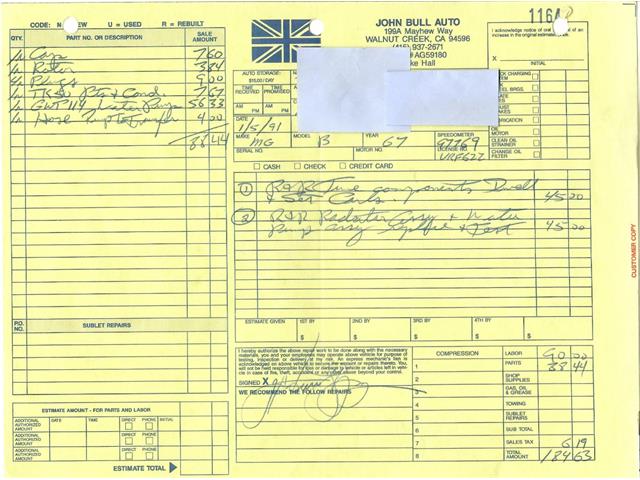 CODE: N = NEW U = USED R = REBUILT
QTY. PART NO. OR DESCRIPTION SALE AMOUNT
Cap 7 60
Rotor 3 84
Plugs 9 00
Pts & Cond. 7 67
GWP 114 Water Pump 56 33
Hose Pump to 4 00
88 44
P.O. NO. SUBLET REPAIRS
ESTIMATE AMOUNT - FOR PARTS AND LABOR
ADDITIONAL AUTHORIZED AMOUNT DATE TIME DIRECT PHONE INITIAL
ADDITIONAL AUTHORIZED AMOUNT DIRECT PHONE
ADDITIONAL AUTHORIZED AMOUNT DIRECT PHONE
ESTIMATE TOTAL
JOHN BULL AUTO
199A Mayhew Way
WALNUT CREEK, CA 94596
(415) 937-2671
#AG59180
ke Hall
1164
I acknowledge notice of oral
increase in the original estimate
X
INITIAL
AUTO STORAGE:
$15.00 / DAY
TIME RECEIVED TIME PROMISED
AM AM
PM PM
DATE 1/5/91
MAKE MG MODEL B YEAR 67 SPEEDOMETER 97769
SERIAL NO. MOTOR NO. LICENSE NO. VRF627
CHARGING
BRGS.
BRICATION
OIL MOTOR
CLEAN OIL STRAINER
CHANGE OIL FILTER
CASH CHECK CREDIT CARD
1 R&R Tune components Dwell
& Set Carbs. 45 00
2 R&R Radiator Assy & Water
Pump assy & Test 45 00
CUSTOMER COPY
ESTIMATE GIVEN 1ST BY 2ND BY 3RD BY 4TH BY
$ $ $ $
I hereby authorize the above repair work to be done along with the necessary
materials, you and your employees may operate above vehicle for purpose of
testing, inspection or delivery at my risk. An express mechanic's lien is
acknowledged on above vehicle to secure the amount of repairs thereto. You
will not be held responsible for loss or damage to vehicle or articles left in vehicle
in case of fire, theft, accident or any other cause beyond your control.
SIGNED X
WE RECOMMEND THE FOLLOW REPAIRS
COMPRESSION
1
2
3
4
5
6
7
8
LABOR 90 00
PARTS 88 44
SHOP SUPPLIES
GAS, OIL & GREASE
TOWING
SUBLET REPAIRS
SUB TOTAL
SALES TAX 6 19
TOTAL AMOUNT 184 63